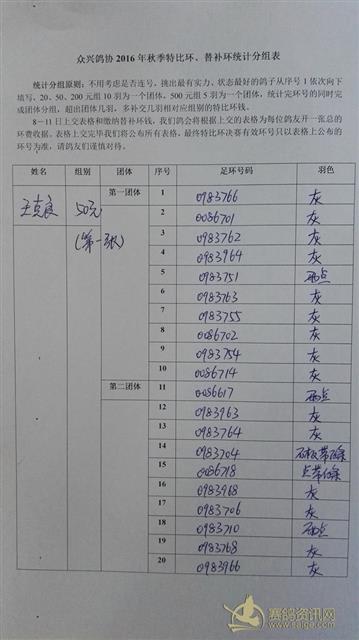 众兴鸽协 2016 年秋季特比环、替补环统计分组表
统计分组原则：不用考虑是否连号，挑出最有实力、状态最好的鸽子从序号 1 依次向下
填写，20、50、200 元组 10 羽为一个团体，500 元组 5 羽为一个团体，统计完环号的同时完
成团体分组，超出团体几羽，多补交几羽相对应组别的特比环钱。
8－11 日上交表格和缴纳替补环钱，我们鸽会将根据上交的表格为每位鸽友开一张总的
环费收据。表格上交完毕我们将公布所有表格，最终特比环决赛有效环号只以表格上公布的
环号为准，请鸽友们谨慎对待。
姓名 组别 团体 序号 足环号码 羽色
王克良 50元 第一团体 1 0983766 灰
2 0086701 灰
(第一张) 3 0983762 灰
4 0983964 灰
5 0983751 雨点
6 0983763 灰
7 0983755 灰
8 0086702 灰
9 0983754 灰
10 0086714 灰
第二团体 11 0086617 雨点
12 0983963 灰
13 0983764 灰
14 0983704
15 0086718
16 0983968 灰
17 0983706 灰
18 0983710 雨点
19 0983768 灰
20 0983966 灰
赛鸽资讯网
www.saige.com